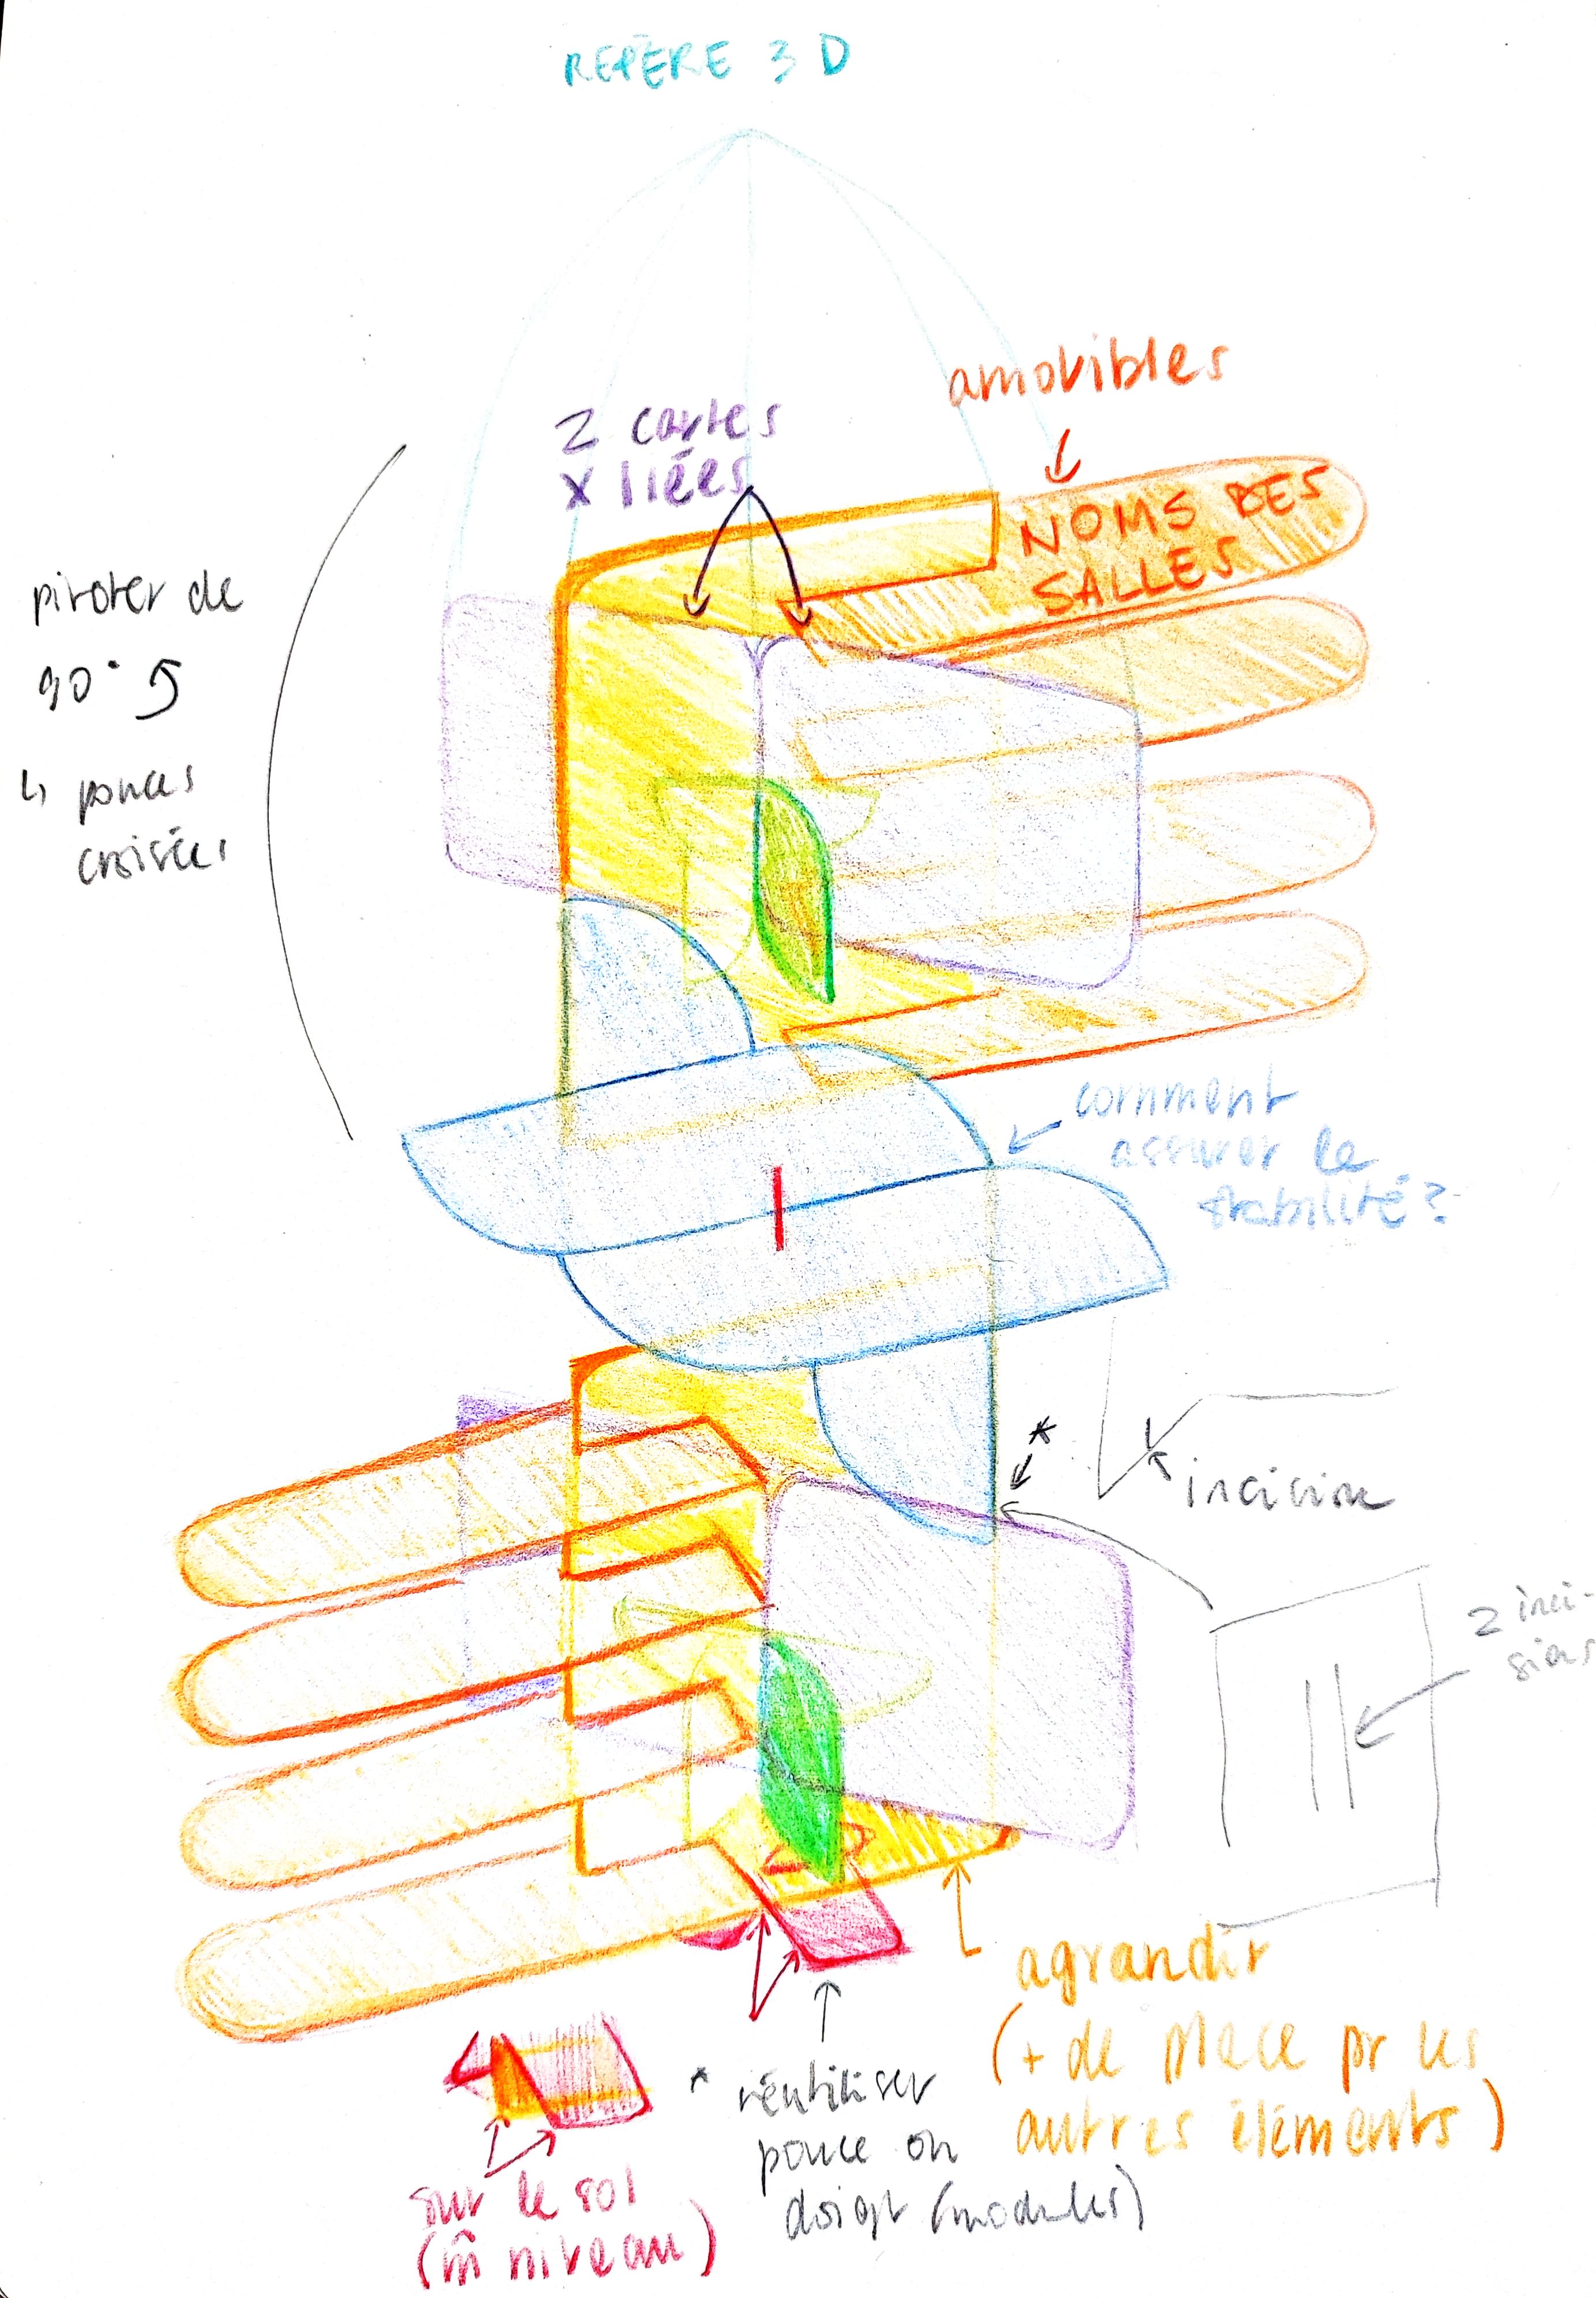 REPÈRE 3D
amovibles
2 cartes
x liées
NOMS DES
SALLES
pivoter de
90°
↳ pouces
croisées
comment
assurer la
stabilité?
*
incision
2 inci-
sions
agrandir
(+ de place pr les
autres éléments)
* réutiliser
pouce ou
doigt (modules)
sur le sol
(m̂ niveau)